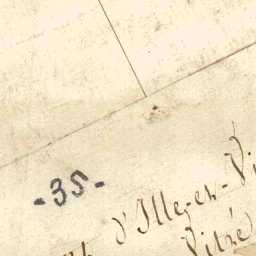 -35-
d'Ille-en-Vi
Vitré